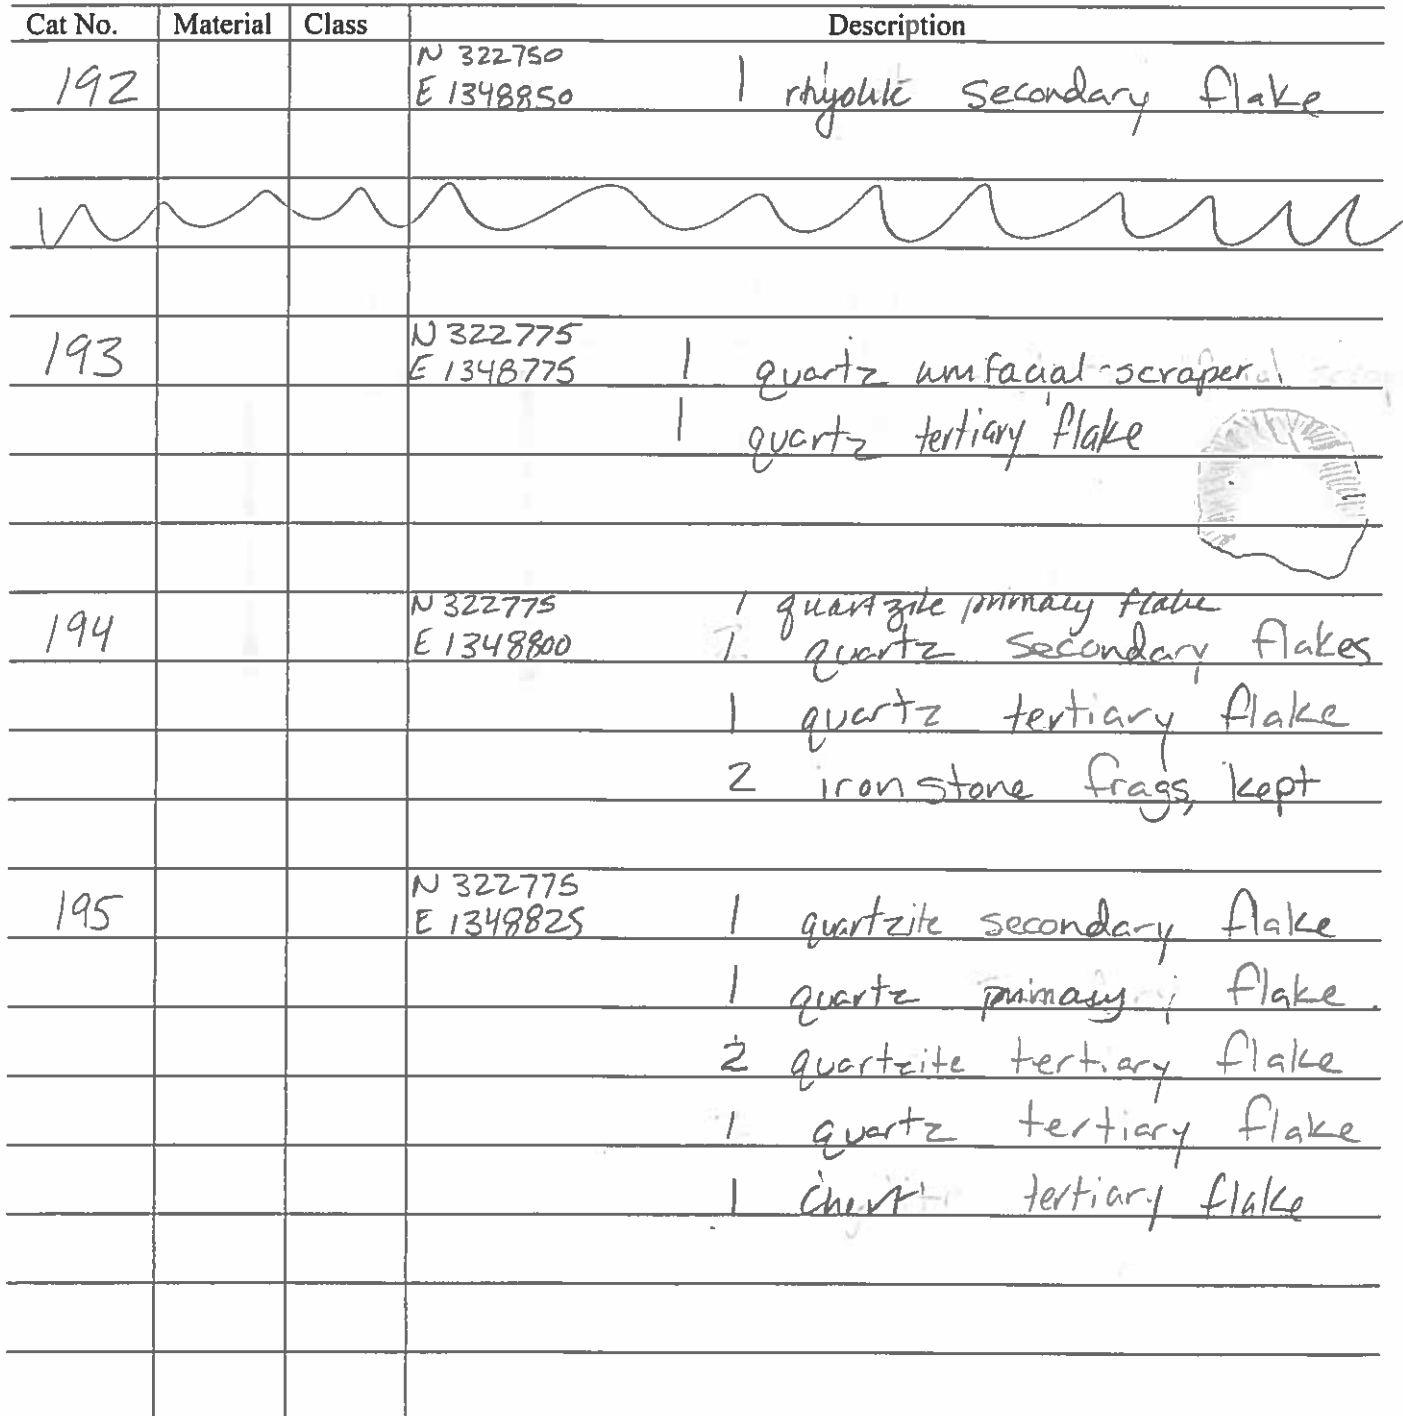 Cat No. Material Class Description
N 322750
192 E 1348850 1 rhyolite secondary flake
N 322775
193 E 1348775 1 quartz unifacial-scraper
1 quartz tertiary flake
N 322775 1 quartzite primary flake
194 E 1348800 1 quartz secondary flakes
1 quartz tertiary flake
2 iron stone frags, kept
N 322775
195 E 1348825 1 quartzite secondary flake
1 quartz primary flake
2 quartzite tertiary flake
1 quartz tertiary flake
1 chert tertiary flake